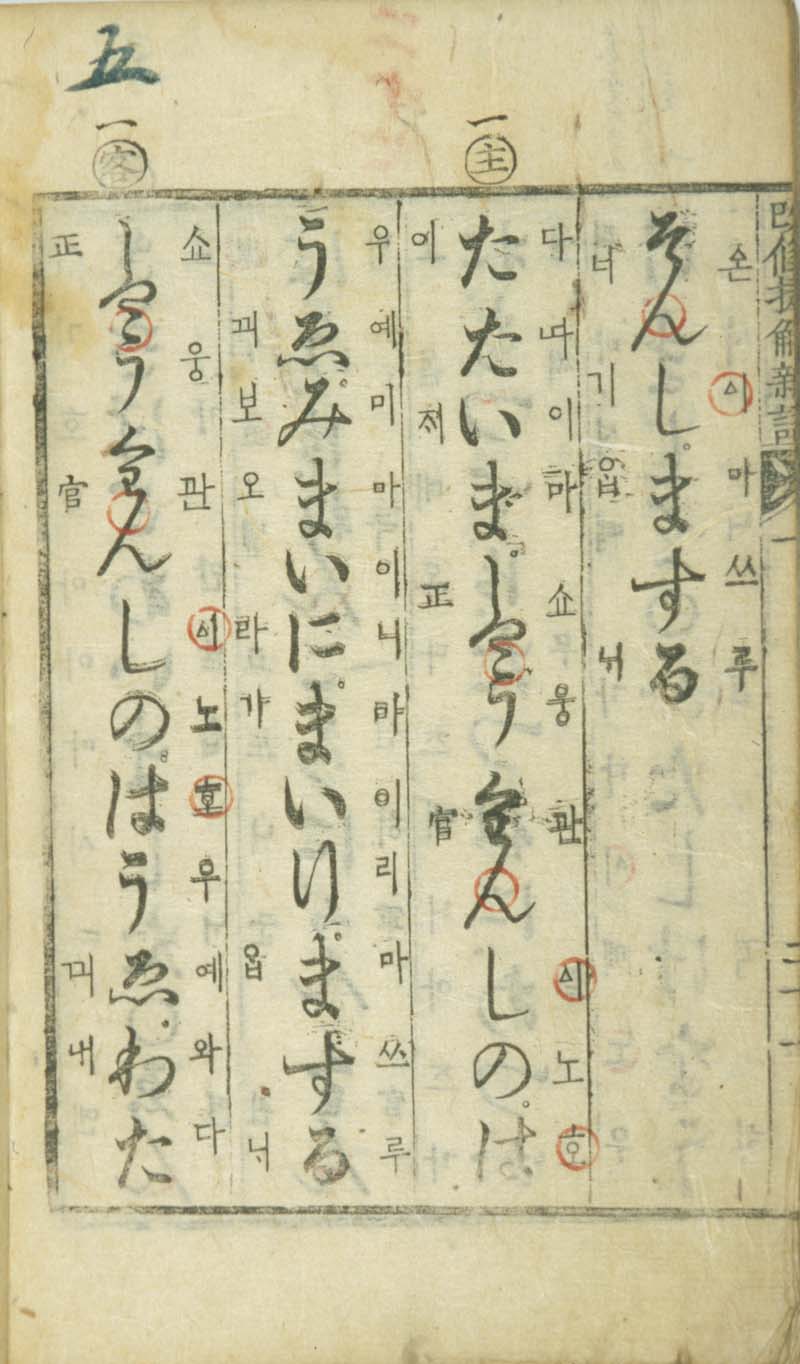 改修捷解新語
손시마쓰루
そんしまする
너기옵ᄂᆡ
一 主
다다이마쇼웅관ᅀᅵ노호
たたいましやうくわんしのは
이제正官
우예미마이니마이리마쓰루
うゑみまいにまいりまする
ᄭᅴ보오라가옵ᄂᆡ
一 客
쇼웅관ᅀᅵ노호우예와다
しやうくわんしのはうゑわた
正官ᄭᅴ내
五